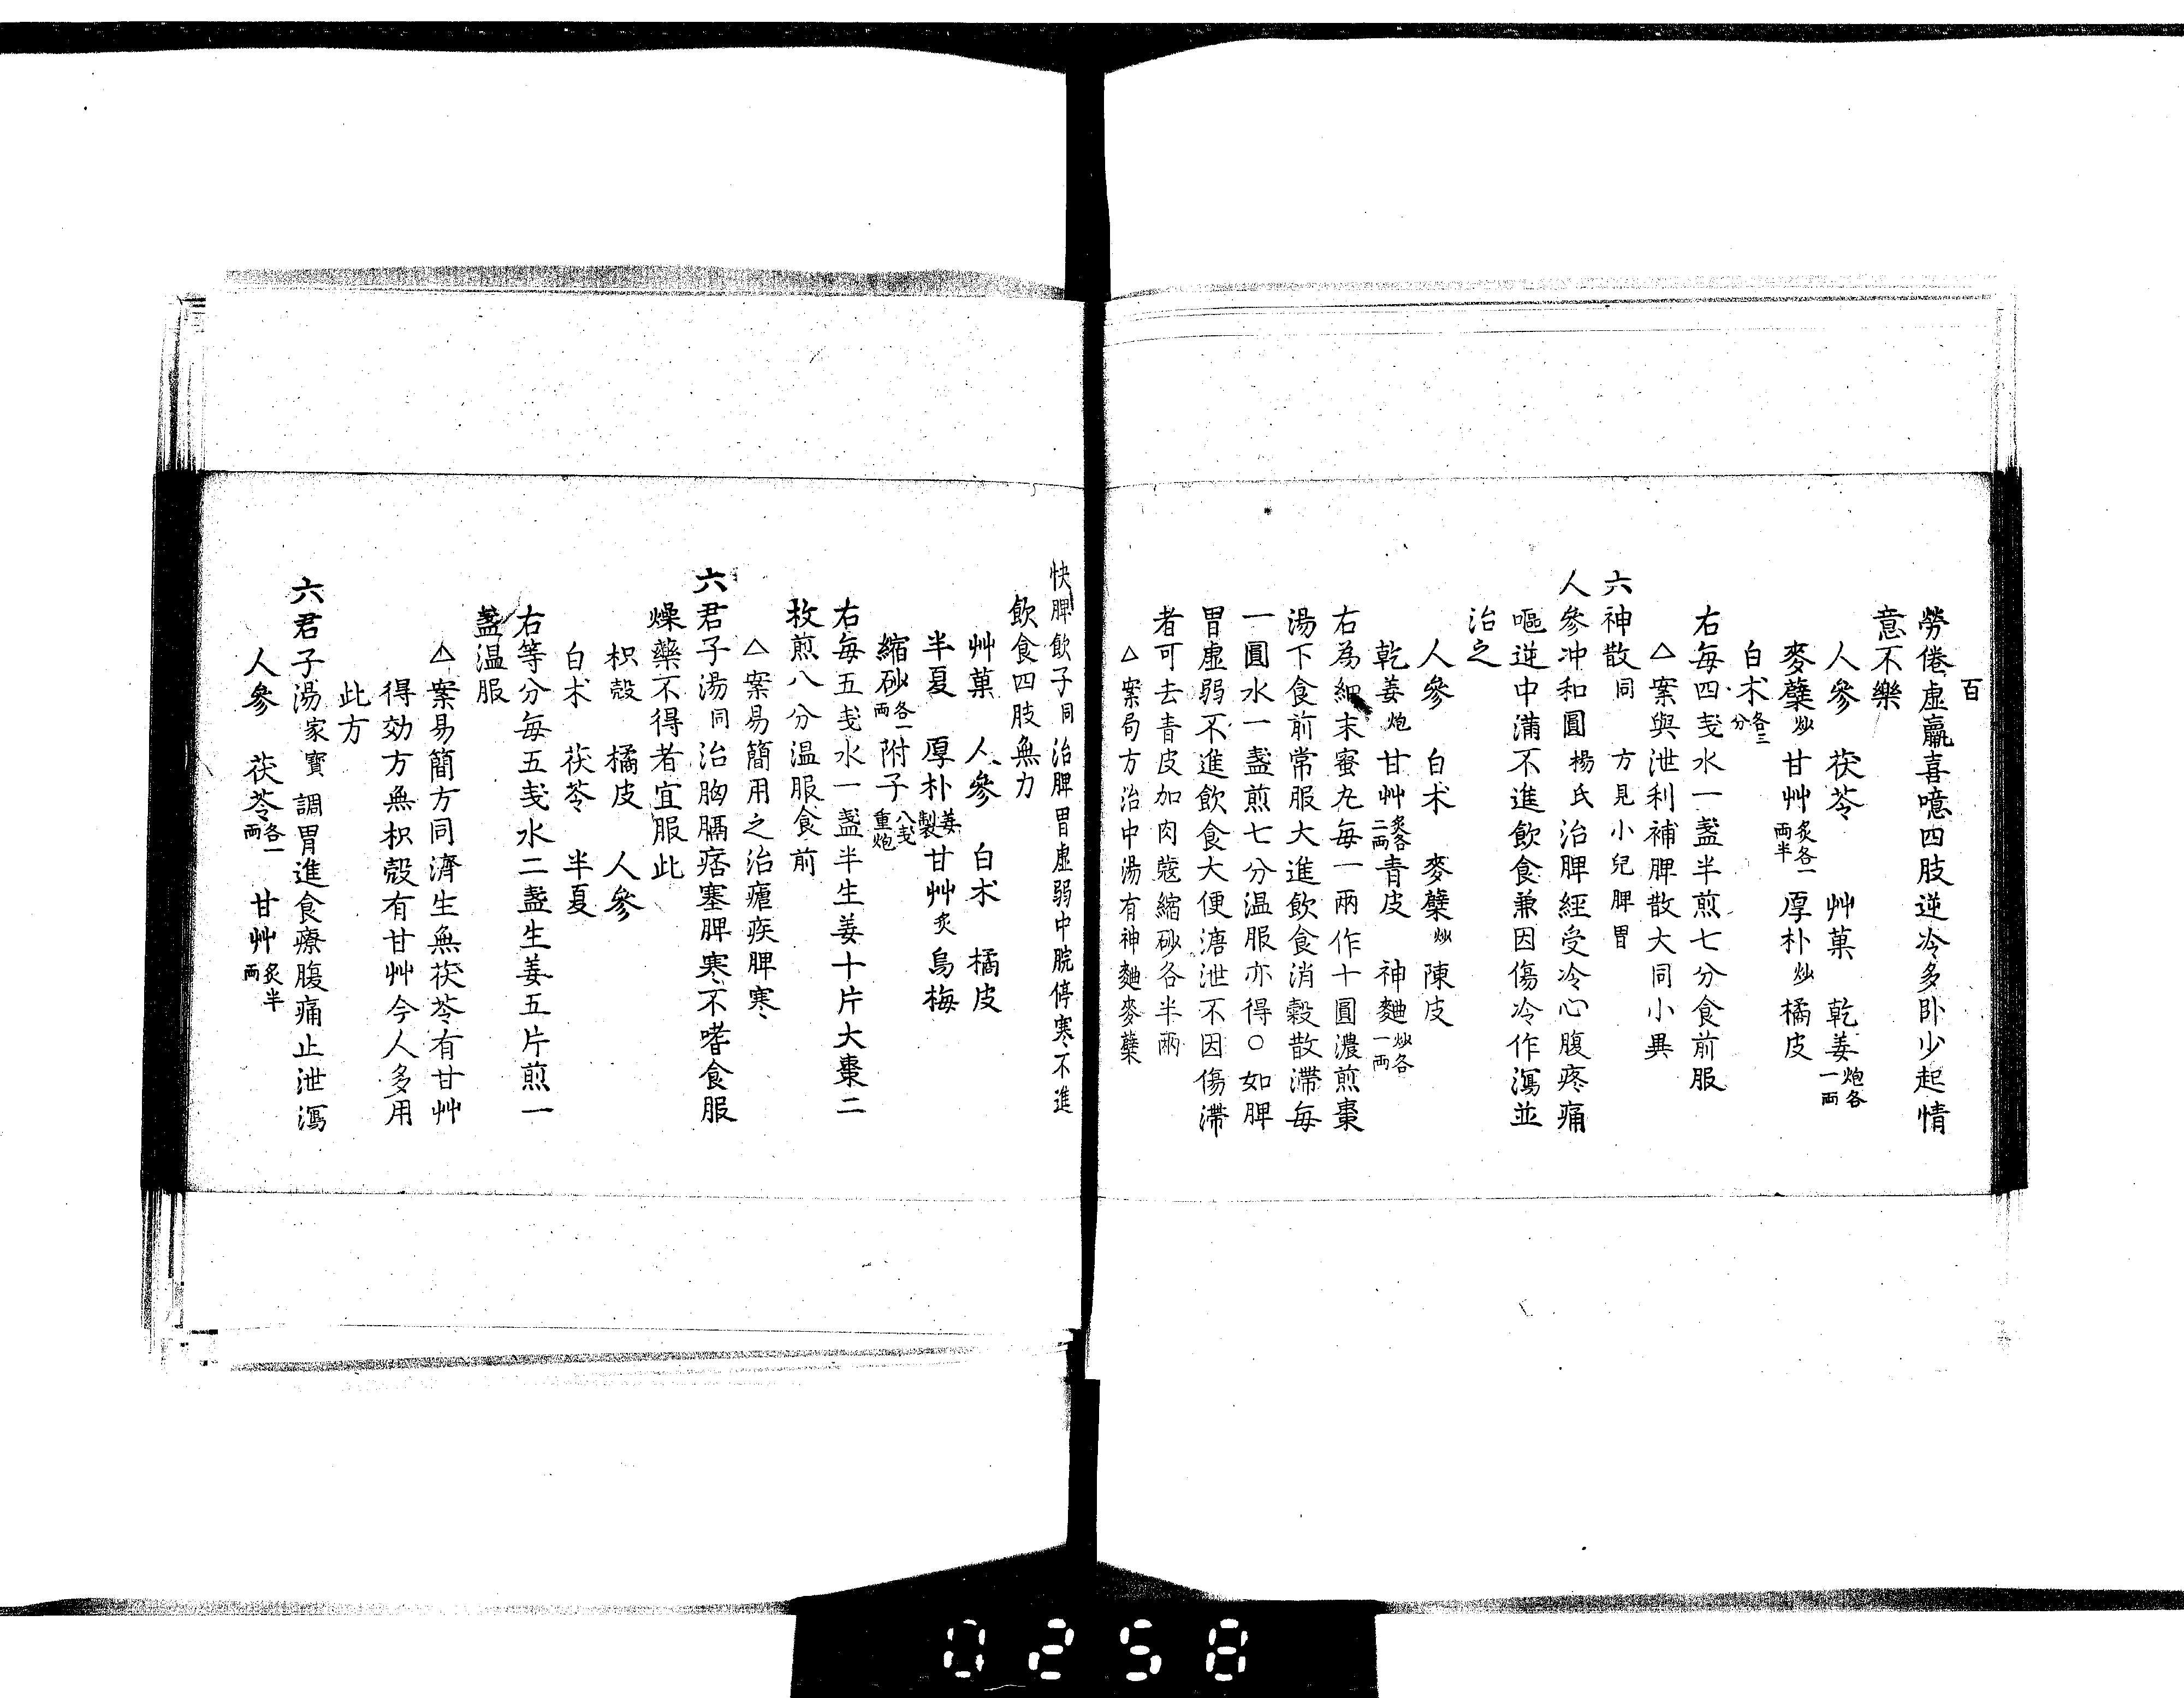 百
勞倦虛羸喜噫四肢逆冷多卧少起情
意不樂
人參　茯苓　艸菓　乾姜炮各一兩
麥蘖炒　甘艸炙各一兩半　厚朴炒　橘皮
白朮各三分
右每四戔水一盞半煎七分食前服
△案與泄利補脾散大同小異
六神散同　方見小兒脾胃
人參冲和圓楊氏治脾經受冷心腹疼痛
嘔逆中滿不進飲食兼因傷冷作瀉並
治之
人參　白朮　麥蘖炒　陳皮
乾姜炮　甘艸炙各二兩　青皮　神麯炒各一兩
右為細末蜜丸每一兩作十圓濃煎棗
湯下食前常服大進飲食消穀散滯每
一圓水一盞煎七分温服亦得○如脾
胃虛弱不進飲食大便溏泄不因傷滯
者可去青皮加肉蔻縮砂各半兩
△案局方治中湯有神麯麥蘖
快脾飲子同治脾胃虛弱中脘停寒不進
飲食四肢無力
艸菓　人參　白朮　橘皮
半夏　厚朴姜製　甘艸炙　烏梅
縮砂各一兩　附子八戔重炮
右每五戔水一盞半生姜十片大棗二
枚煎八分温服食前
△案易簡用之治瘧疾脾寒
六君子湯同治胸膈痞塞脾寒不嗜食服
燥藥不得者宜服此
枳殼　橘皮　人參
白朮　茯苓　半夏
右等分每五戔水二盞生姜五片煎一
盞温服
△案易簡方同濟生無茯苓有甘艸
得効方無枳殼有甘艸今人多用
此方
六君子湯家寶調胃進食療腹痛止泄瀉
人參　茯苓各一兩　甘艸炙半兩
0258